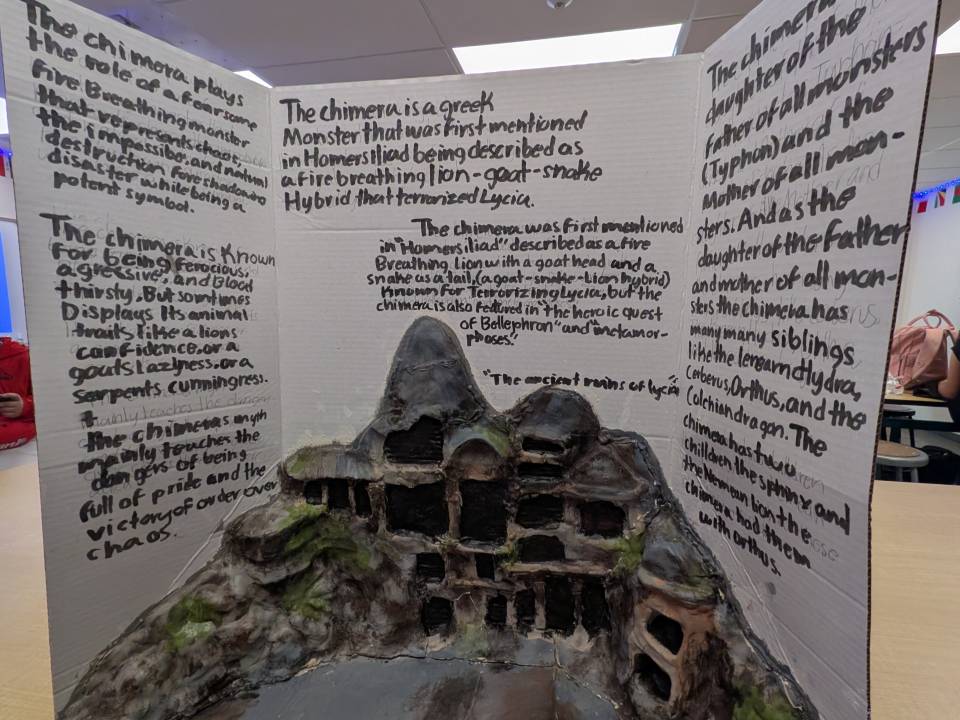 The chimera plays
the role of a fearsome
fire Breathing monster
that represents chaos,
the impossible, and natural
destruction foreshadows
disaster while being a
potent symbol.
The chimera is known
For being ferocious,
agressive, and Blood
thirsty, But somtimes
Displays Its animal
traits like a lions
confidence, or a
goats lazyness, or a
serpents cunningress.
the chimeras myth
mainly teaches the
dangers of being
full of pride and the
victory of order over
chaos.
The chimera is a greek
Monster that was first mentioned
in Homers iliad being described as
a fire breathing lion-goat-snake
Hybrid that terrorized Lycia.
The chimera was first mentioned
in "Homers iliad" described as a fire
Breathing Lion with a goat head and a
snake as a tail, (a goat-snake-Lion hybrid)
Known for Terrorizing Lycia, but the
chimera is also featured in "the heroic quest
of Bellephron" and "metamor-
phoses."
"The ancient ruins of lycia"
The chimera
daughter of the
Father of all monsters
(Typhon) and the
Mother of all mon-
sters. And as the
daughter of the Father
and mother of all mon-
sters the chimera has
many many siblings
like the
Cerberus, Orthus, and the
Colchian dragon. The
chimera has two
children the sphinx and
the Nemean lion the
chimera had them
with orthus.